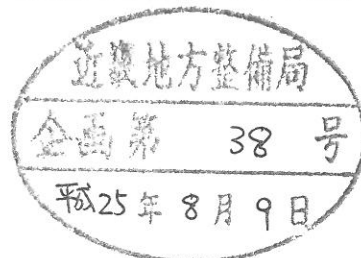 近畿地方整備局
企画第 38 号
平成25年8月9日